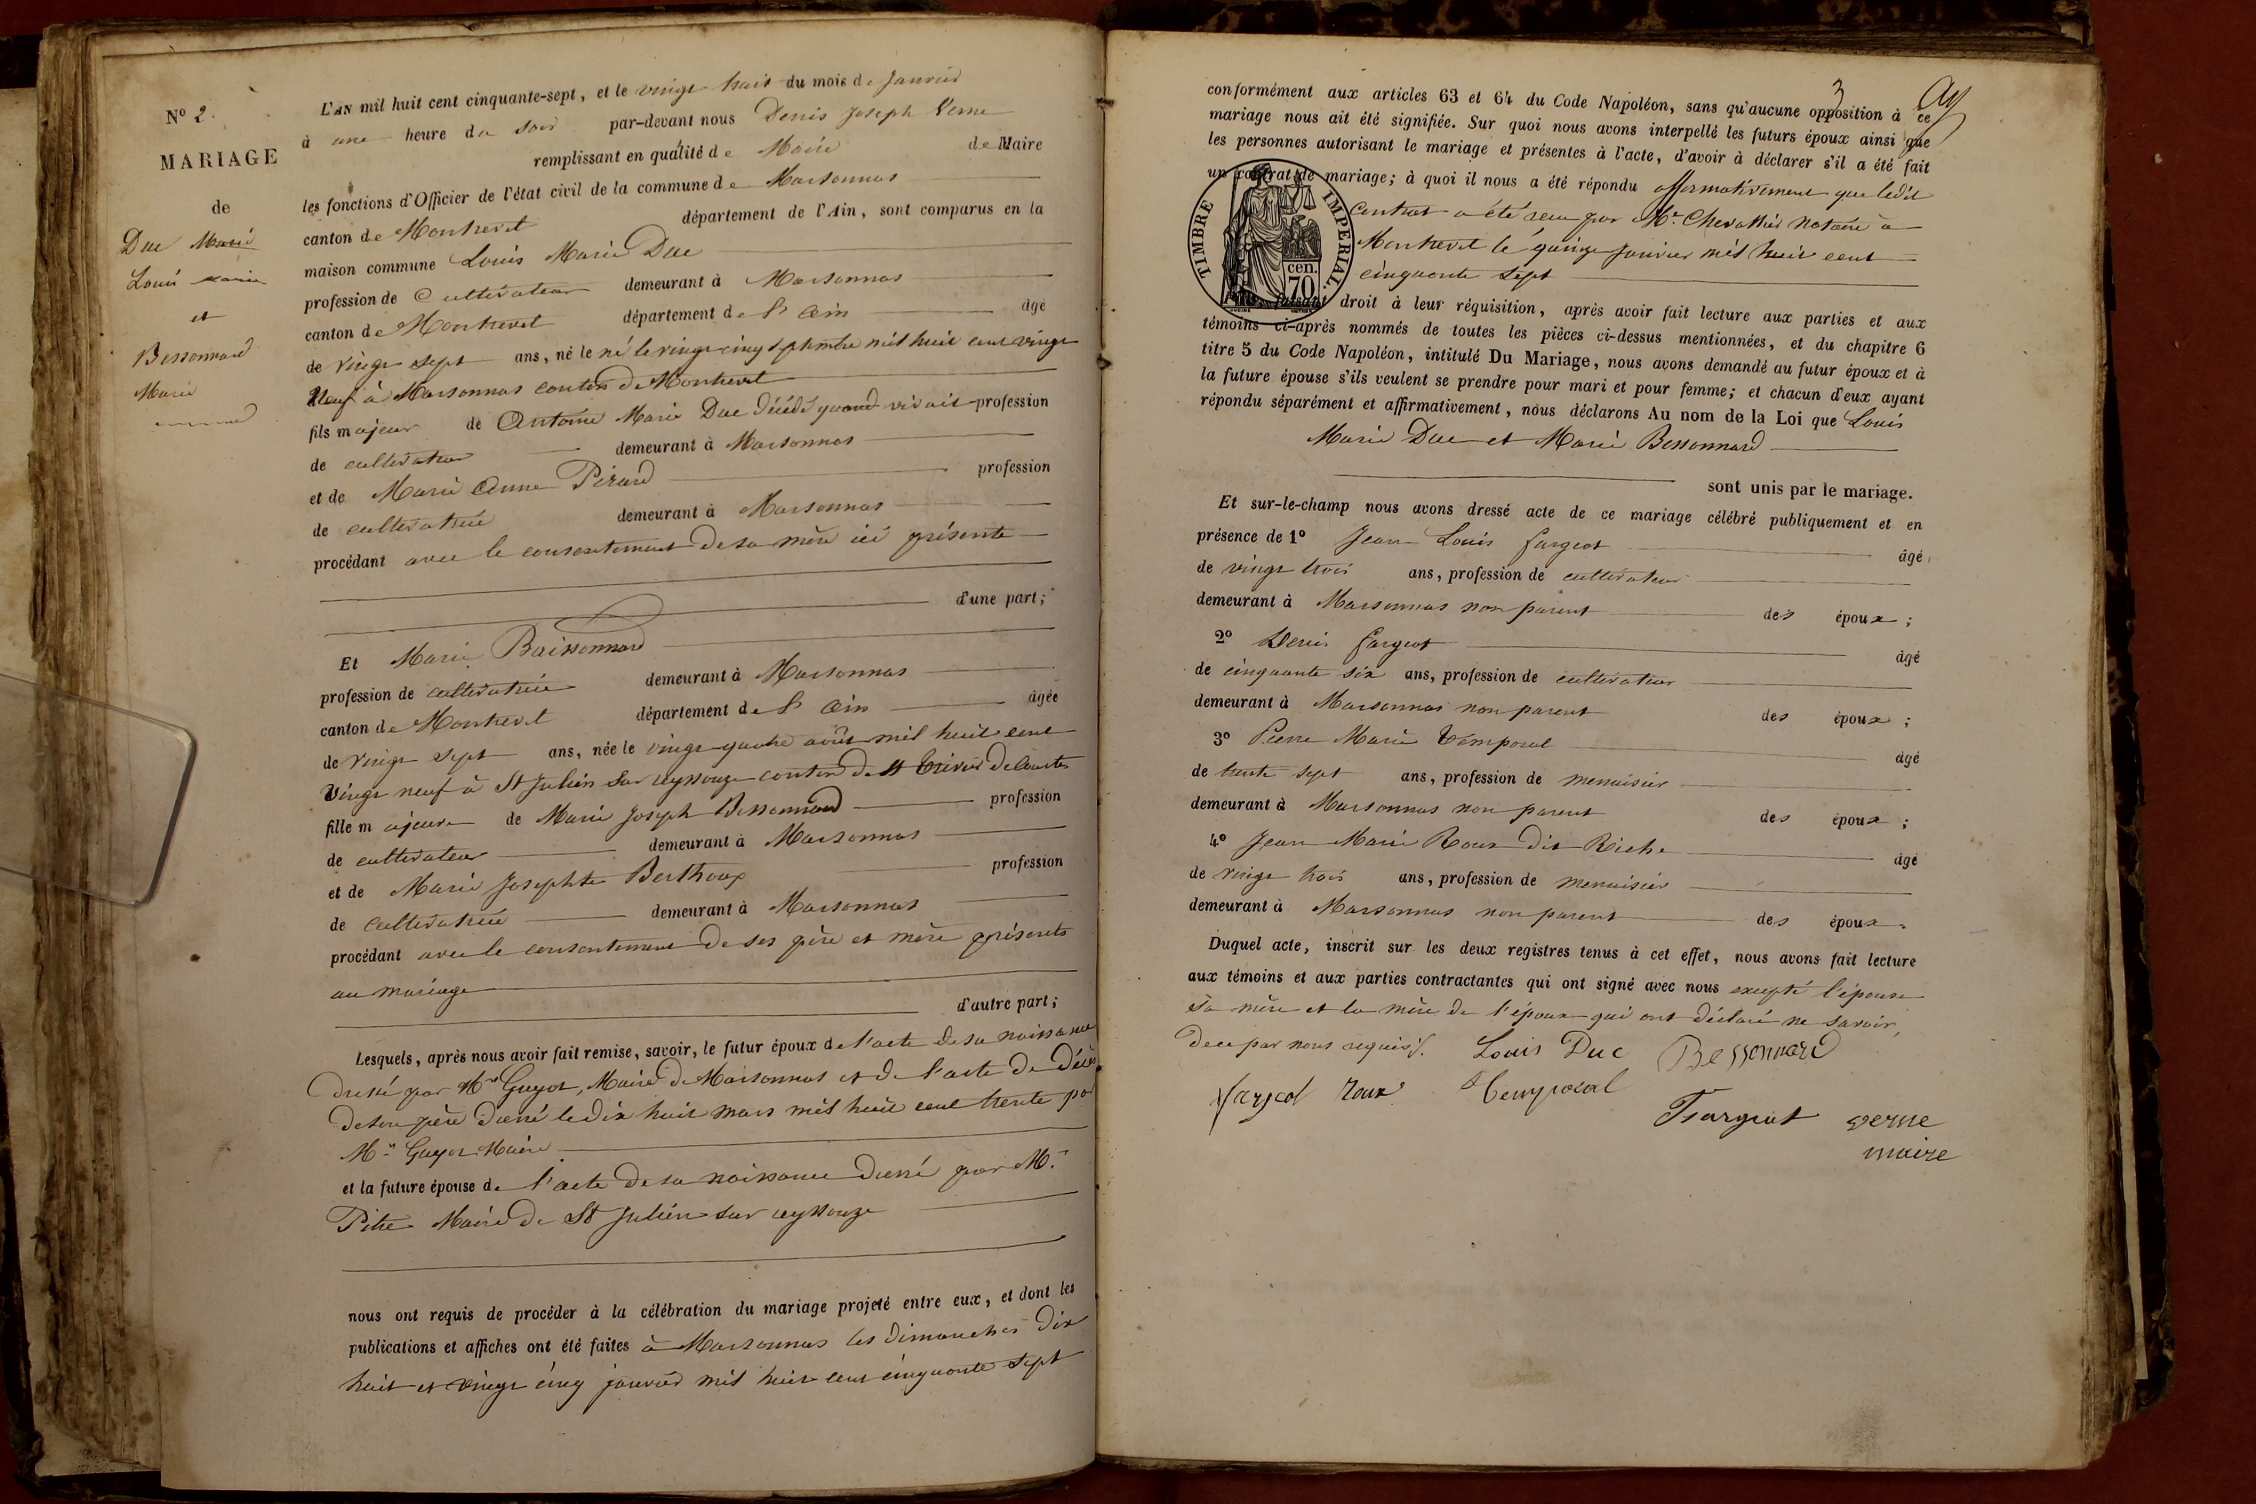 N° 2.
MARIAGE
de
Duc Marie
Louis Marie
et
Bessonnard
Marie
L'AN mil huit cent cinquante-sept, et le vingt huit du mois de Janvier
à une heure du soir par-devant nous Denis Joseph Verne
remplissant en qualité de Maire de Maire
les fonctions d'Officier de l'état civil de la commune de Marsonnas
canton de Montrevel département de l'Ain, sont comparus en la
maison commune Louis Marie Duc
profession de Cultivateur demeurant à Marsonnas
canton de Montrevel département de l'Ain âgé
de vingt sept ans, né le né le vingt cinq septembre mil huit cent vingt
neuf à Marsonnas canton de Montrevel
fils majeur de Antoine Marie Duc décédé quand vivait profession
de cultivateur demeurant à Marsonnas
et de Marie Anne Pirard profession
de cultivatrice demeurant à Marsonnas
procédant avec le consentement de sa mère ici présente
d'une part;
Et Marie Baissonnard
profession de cultivatrice demeurant à Marsonnas
canton de Montrevel département de l'Ain âgée
de vingt sept ans, née le vingt quatre août mil huit cent
vingt neuf à St Julien sur reyssouze canton de St Trivier de Courtes
fille majeure de Marie Joseph Bessonnard profession
de cultivateur demeurant à Marsonnas
et de Marie Josephte Berthoux profession
de cultivatrice demeurant à Marsonnas
procédant avec le consentement de ses père et mère présents
au mariage
d'autre part;
Lesquels, après nous avoir fait remise, savoir, le futur époux de l'acte de sa naissance
dressé par Mr Guyot, Maire de Marsonnas et de l'acte de décès
de son père dressé le dix huit mars mil huit cent trente par
Mr Guyot Maire
et la future épouse de l'acte de sa naissance dressé par Mr
Pitre Maire de St Julien sur reyssouze
nous ont requis de procéder à la célébration du mariage projeté entre eux, et dont les
publications et affiches ont été faites à Marsonnas les dimanches dix
huit et vingt cinq janvier mil huit cent cinquante sept
3
conformément aux articles 63 et 64 du Code Napoléon, sans qu'aucune opposition à ce
mariage nous ait été signifiée. Sur quoi nous avons interpellé les futurs époux ainsi que
les personnes autorisant le mariage et présentes à l'acte, d'avoir à déclarer s'il a été fait
un contrat de mariage; à quoi il nous a été répondu affirmativement que ledit
contrat a été reçu par Mr Chevallier Notaire à
Montrevel le quinze janvier mil huit cent
cinquante sept
TIMBRE IMPERIAL.
70 cen.
faisant droit à leur réquisition, après avoir fait lecture aux parties et aux
témoins ci-après nommés de toutes les pièces ci-dessus mentionnées, et du chapitre 6
titre 5 du Code Napoléon, intitulé Du Mariage, nous avons demandé au futur époux et à
la future épouse s'ils veulent se prendre pour mari et pour femme; et chacun d'eux ayant
répondu séparément et affirmativement, nous déclarons Au nom de la Loi que Louis
Marie Duc et Marie Bessonnard
sont unis par le mariage.
Et sur-le-champ nous avons dressé acte de ce mariage célébré publiquement et en
présence de 1° Jean Louis fargeot âgé
de vingt trois ans, profession de cultivateur
demeurant à Marsonnas non parent des époux;
2° Denis fargeot âgé
de cinquante six ans, profession de cultivateur
demeurant à Marsonnas non parent des époux;
3° Pierre Marie Temporal âgé
de trente sept ans, profession de menuisier
demeurant à Marsonnas non parent des époux;
4° Jean Marie Roux dit Riche âgé
de vingt trois ans, profession de menuisier
demeurant à Marsonnas non parent des époux.
Duquel acte, inscrit sur les deux registres tenus à cet effet, nous avons fait lecture
aux témoins et aux parties contractantes qui ont signé avec nous excepté l'épouse
sa mère et la mère de l'époux qui ont déclaré ne savoir,
de ce par nous requis/.
Louis Duc Bessonnard
fargeot Roux Temporal
Fargeot verne
maire